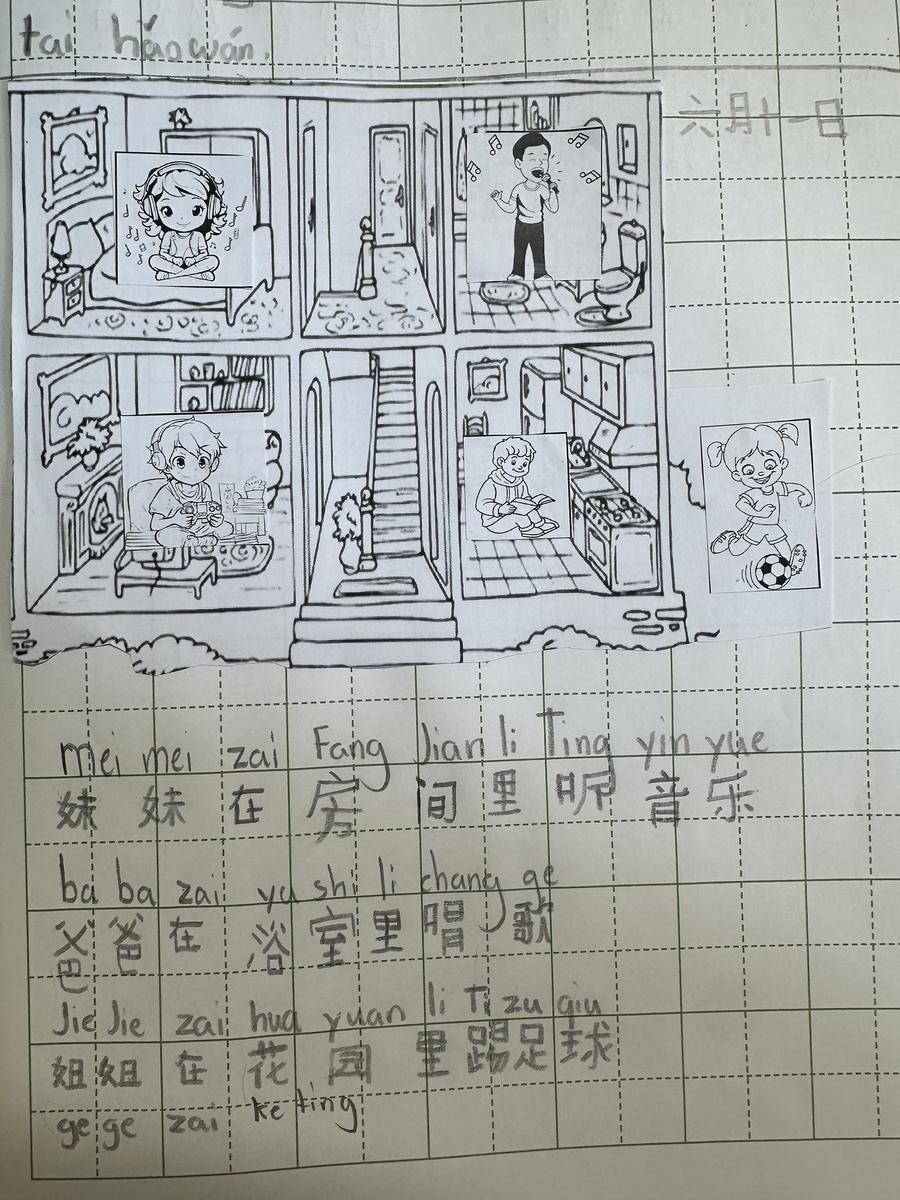 tai hǎo wán.
六月十一日
mei mei zai Fang Jian li Ting yin yue
妹妹在房间里听音乐
ba ba zai yu shi li chang ge
爸爸在浴室里唱歌
Jie Jie zai hua yuan li Ti zu qiu
姐姐在花园里踢足球
ge ge zai ke ting